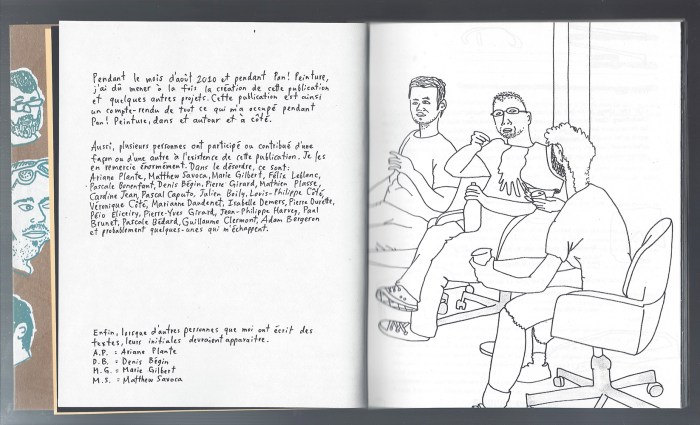 Pendant le mois d'août 2010 et pendant Pan! Peinture,
j'ai dû mener à la fois la création de cette publication
et quelques autres projets. Cette publication est ainsi
un compte-rendu de tout ce qui m'a occupé pendant
Pan! Peinture, dans et autour et à côté.
Aussi, plusieurs personnes ont participé ou contribué d'une
façon ou d'une autre à l'existence de cette publication. Je les
en remercie énormément. Dans le désordre, ce sont:
Ariane Plante, Matthew Savoca, Marie Gilbert, Félix Leblanc,
Pascale Bonenfant, Denis Bégin, Pierre Girard, Mathieu Plasse,
Caroline Jean, Pascal Caputo, Julien Boily, Louis-Philippe Côté,
Véronique Côté, Marianne Dandenet, Isabelle Demers, Pierre Durette,
Péio Eliceiry, Pierre-Yves Girard, Jean-Philippe Harvey, Paul
Brunet, Pascale Bédard, Guillaume Clermont, Adam Bergeron
et probablement quelques-unes qui m'échappent.
Enfin, lorsque d'autres personnes que moi ont écrit des
textes, leurs initiales devraient apparaître.
A.P. = Ariane Plante
D.B. = Denis Bégin
M.G. = Marie Gilbert
M.S. = Matthew Savoca